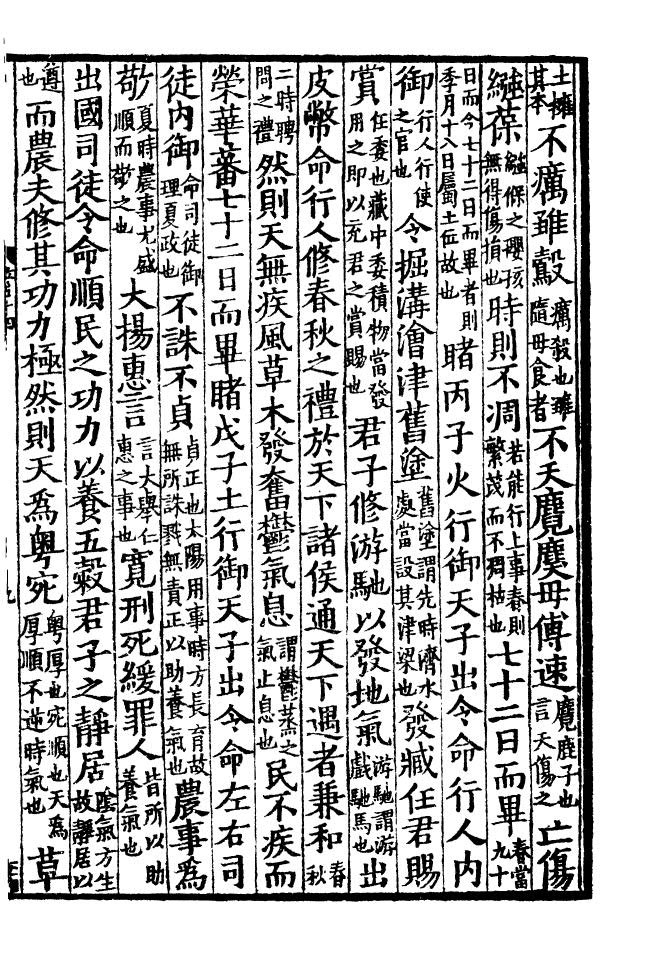 土擁其本不癘雛鷇癘殺也雛隨母食者不夭麛麌毋傅速麛鹿子也言夭傷之亡傷
繈葆繈緥之嬰孩無得傷損也時則不凋若能行上事春則繁茂而不凋枯也七十二日而畢春當九十
日而今七十二日而畢者則季月十八日屬土位故也睹丙子火行御天子出令命行人内
御行人行使之官也令掘溝澮津舊塗舊塗謂先時濟水處當設其津梁也發臧任君賜
賞任委也藏中委積物當發用之即以充君之賞賜也君子修游馳以發地氣游馳謂游戲馳馬也出
皮幣命行人修春秋之禮於天下諸侯通天下遇者兼和春秋
二時聘問之禮然則天無疾風草木發奮鬱氣息謂鬱蒸之氣止息也民不疾而
榮華蕃七十二日而畢睹戊子土行御天子出令命左右司
徒内御命司徒御理夏政也不誅不貞貞正也太陽用事時方長育故無所誅戮無責正以助養氣也農事爲
敬夏時農事尤盛順而敬之也大揚惠言言大舉仁惠之事也寬刑死緩罪人皆所以助養氣也
出國司徒令命順民之功力以養五穀君子之靜居陰氣方生故靜居以
遵也而農夫修其功力極然則天爲粵宛粵厚也宛順也天爲厚順不逆時氣也草